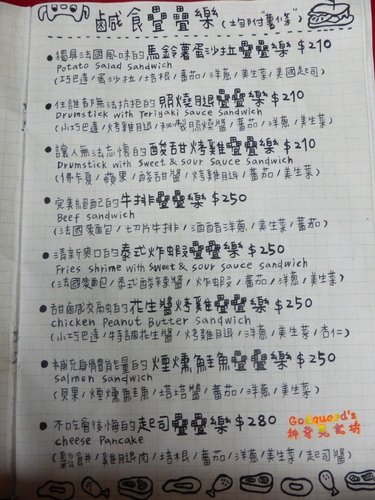 鹹食疊疊樂(均附"薯條")
獨具法國風味的馬鈴薯蛋沙拉疊疊樂 $210
Potato Salad Sandwich
(巧巴達/蛋沙拉/培根/番茄/洋蔥/美生菜/美國起司)
任誰都無法抗拒的照燒腿疊疊樂 $210
Drumstick with Teriyaki Sauce Sandwich
(小巧巴達/烤雞腿/和製照燒醬/番茄/洋蔥/美生菜)
讓人無法忘懷的酸甜烤雞疊疊樂 $210
Drumstick with Sweet & Sour Sauce Sandwich
(佛卡夏/蘋果/酸甜醬/烤雞腿/番茄/美生菜)
完美絕配的牛排疊疊樂 $250
Beef Sandwich
(法國麵包/切片牛排/酒醋洋蔥/美生菜/番茄)
清新爽口的泰式炸蝦疊疊樂 $250
Fries shrime with sweet & sour sauce sandwich
(法國麵包/泰式酸辣醬/炸蝦/番茄/洋蔥/美生菜)
甜鹹交融的花生醬烤雞疊疊樂 $250
chicken Peanut Butter Sandwich
(小巧巴達/特調花生醬/烤雞腿/洋蔥/美生菜/杏仁)
補充身體能量的煙燻鮭魚疊疊樂 $250
Salmon Sandwich
(貝果/煙燻鮭魚/塔塔醬/番茄/洋蔥/美生菜)
不吃會後悔的起司疊疊樂 $280
cheese Pancake
(鬆餅/雞腿肉/培根/番茄/洋蔥/美生菜/起司醬)